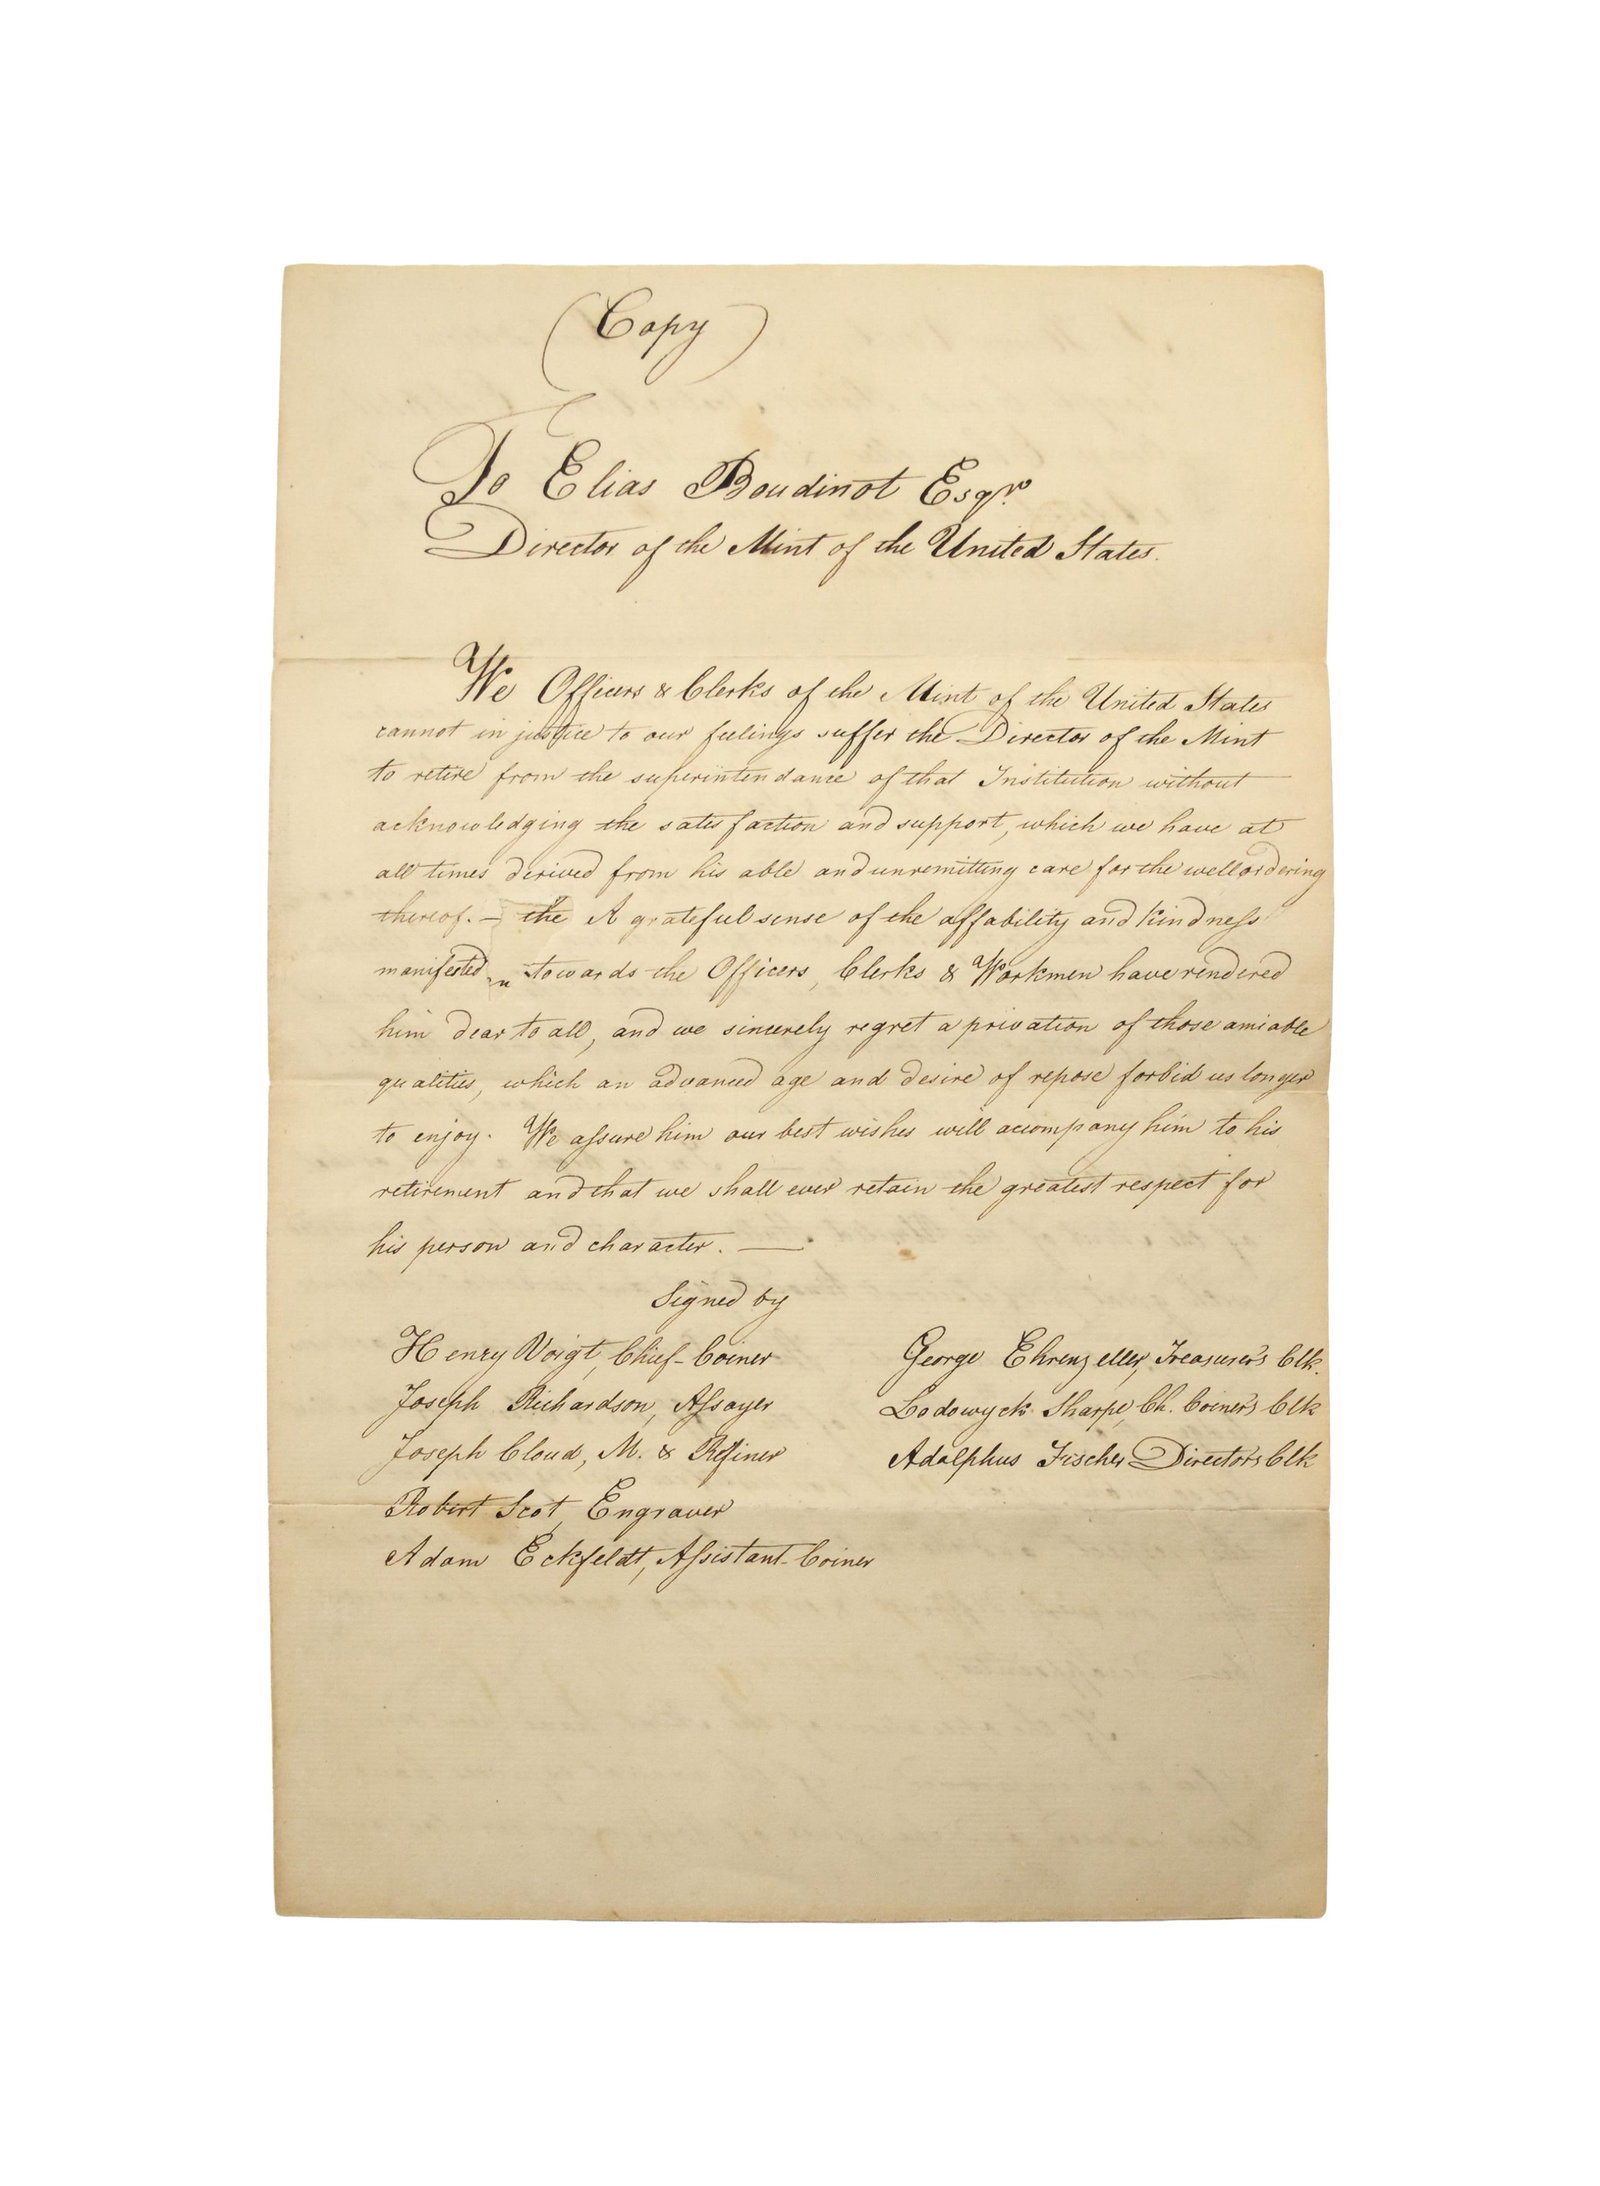 (Copy)
To Elias Boudinot Esqr.
Director of the Mint of the United States.
We Officers & Clerks of the Mint of the United States
cannot in justice to our feelings suffer the Director of the Mint
to retire from the superintendance of that Institution without
acknowledging the satisfaction and support, which we have at
all times derived from his able and unremitting care for the wellordering
thereof. — the A grateful sense of the affability and kindness
manifested towards the Officers, Clerks & Workmen have rendered
him dear to all, and we sincerely regret a privation of those amiable
qualities, which an advanced age and desire of repose forbid us longer
to enjoy. We assure him our best wishes will accompany him to his
retirement and that we shall ever retain the greatest respect for
his person and character. —
Signed by
Henry Voigt, Chief-Coiner
Joseph Richardson, Assayer
Joseph Cloud, M. & Refiner
Robert Scot, Engraver
Adam Eckfeldt, Assistant-Coiner
George Ehrenzeller, Treasurer's Clk.
Lodowyck Sharpe, Ch. Coiner's Clk
Adolphus Fischer Directors Clk